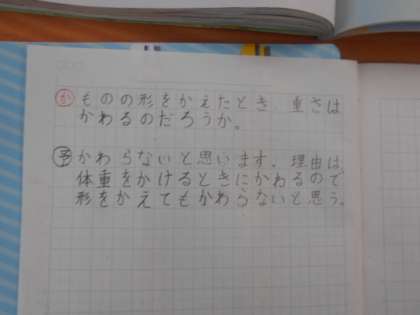 か ものの形をかえたとき、重さは
かわるのだろうか。
予 かわらないと思います。理由は、
体重をかけるときにかわるので
形をかえてもかわらないと思う。